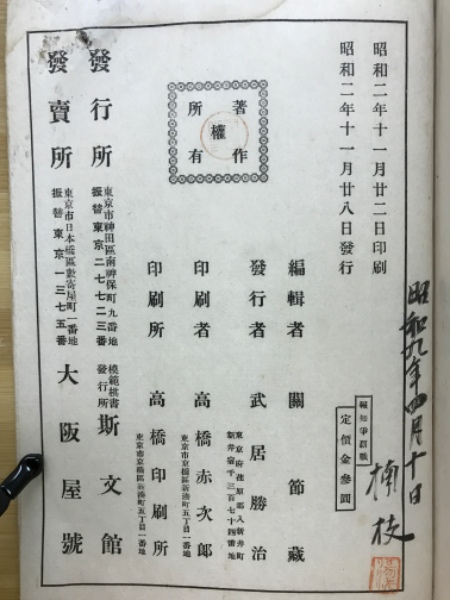 昭和二年十一月廿二日印刷
昭和二年十一月廿八日發行
昭和九年四月十日
楠枝
定價金參圓
著作權所有
編輯者 關節藏
東京府荏原郡入新井町
新井宿千三百七十四番地
發行者 武居勝治
東京市京橋區新湊町五丁目一番地
印刷者 高橋赤次郎
東京市京橋區新湊町五丁目一番地
印刷所 高橋印刷所
發行所
東京市神田區南神保町九番地
振替東京二七七二三番
模範棋書發行所
斯文館
發賣所
東京市日本橋區數寄屋町一番地
振替東京一三七五番
大阪屋號